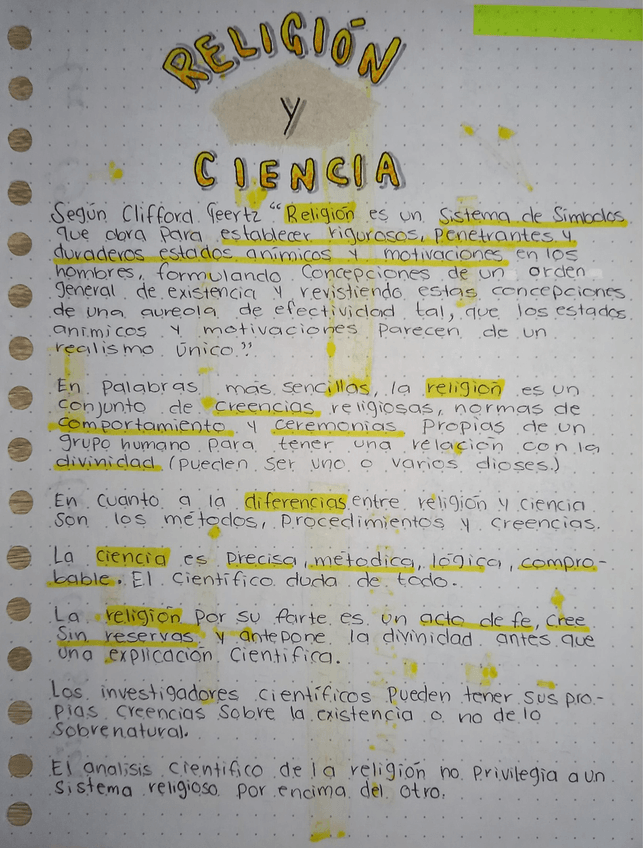 RELIGIÓN
Y
CIENCIA
Según Clifford Geertz "Religión es un Sistema de Simbolos
que obra para establecer rigurosos, penetrantes y
duraderos estados anímicos y motivaciones en los
hombres, formulando Concepciones de un orden
general de existencia y revistiendo estas concepciones
de una aureola de efectividad tal, que los estados
animicos y motivaciones parecen de un
realismo único."
En palabras más sencillas, la religión es un
conjunto de creencias religiosas, normas de
comportamiento y ceremonias propias de un
grupo humano para tener una relación con la
divinidad (pueden ser uno o varios dioses.)
En cuanto a la diferencias entre religión y ciencia
son los métodos, procedimientos y creencias.
La ciencia es precisa, métodica, lógica, compro-
bable. El científico duda de todo.
La religión por su parte es un acto de fe, cree
sin reservas y antepone la divinidad antes que
una explicación científica.
Los investigadores científicos pueden tener sus pro-
pias creencias sobre la existencia o no de lo
sobrenatural.
El analisis científico de la religión no privilegia a un
sistema religioso por encima del otro.